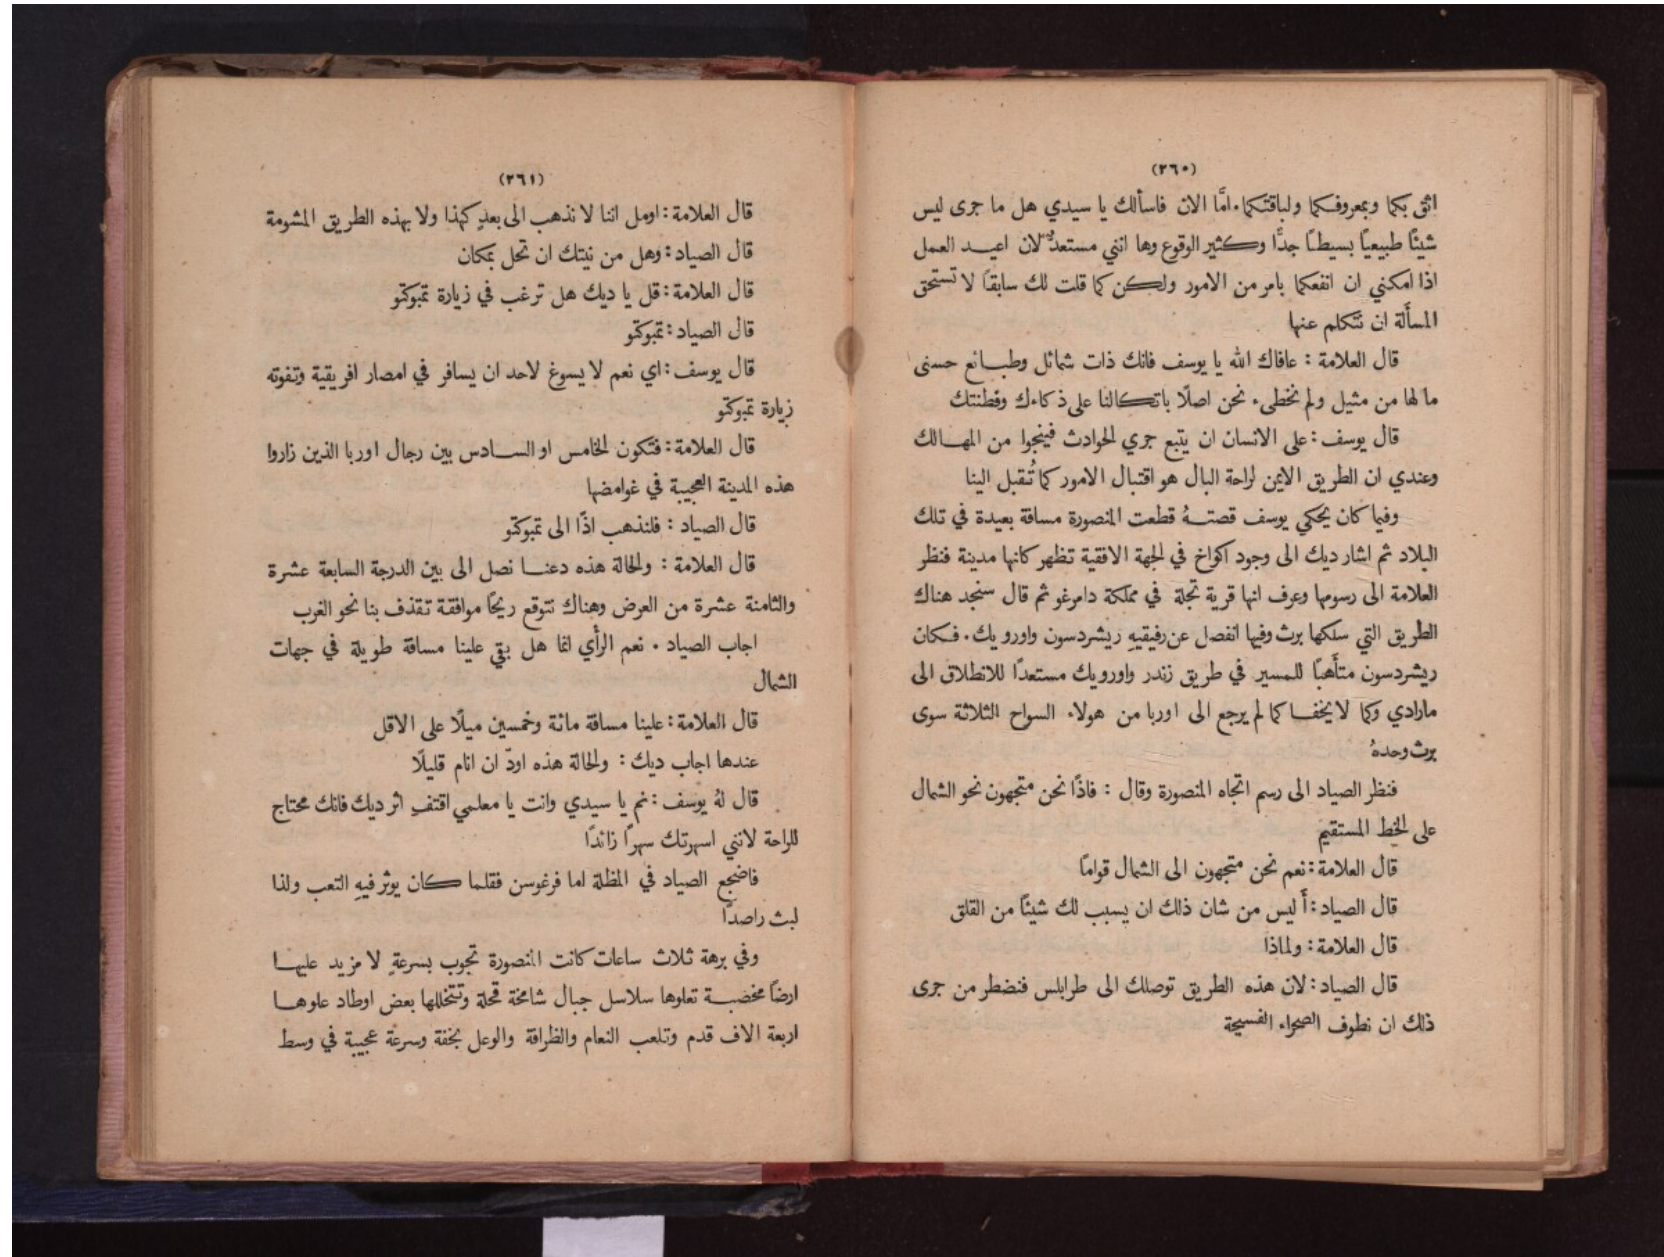 (٢٦٠)
اثق بكما وبمعروفكما ولباقتكما. امَّا الان فاسألك يا سيدي هل ما جرى ليس
شيئًا طبيعيًا بسيطًا جدًّا وكثير الوقوع وها انني مستعدٌّ لان اعيد العمل
اذا امكنني ان انفعكما بامر من الامور ولكن كما قلت لك سابقًا لا تستحق
المسأَلة ان نتكلم عنها
قال العلامة : عافاك الله يا يوسف فانك ذات شمائل وطبائع حسنى
ما لها من مثيل ولم نخطىء نحن اصلًا باتكالنا على ذكاءك وفطنتك
قال يوسف : على الانسان ان يتبع جري الحوادث فينجوا من المهالك
وعندي ان الطريق الايمن لراحة البال هو اقتبال الامور كما تُقبل الينا
وفيما كان يحكي يوسف قصتهُ قطعت المنصورة مسافة بعيدة في تلك
البلاد ثم اشار ديك الى وجود اكواخ في الجهة الافقية تظهر كانها مدينة فنظر
العلامة الى رسومها وعرف انها قرية تجلة في مملكة دامرغو ثم قال سنجد هناك
الطريق التي سلكها برث وفيها انفصل عن رفيقيهِ ريشردسون واورويك. فكان
ريشردسون متأَهبًا للمسير في طريق زندر واورويك مستعدًا للانطلاق الى
مارادي وكما لا يخفا كما لم يرجع الى اوربا من هولاء السواح الثلاثة سوى
برث وحدهُ
فنظر الصياد الى رسم اتجاه المنصورة وقال : فاذًا نحن متجهون نحو الشمال
على الخط المستقيم
قال العلامة : نعم نحن متجهون الى الشمال قوامًا
قال الصياد : أَليس من شان ذلك ان يسبب لك شيئًا من القلق
قال العلامة : ولماذا
قال الصياد : لان هذه الطريق توصلك الى طرابلس فنضطر من جرى
ذلك ان نطوف الصحراء الفسيحة
(٢٦١)
قال العلامة : اومل اننا لا نذهب الى بعدٍ كهذا ولا بهذه الطريق المشومة
قال الصياد : وهل من نيتك ان تحل بمكان
قال العلامة : قل يا ديك هل ترغب في زيارة تمبوكتو
قال الصياد : تمبوكتو
قال يوسف : اي نعم لا يسوغ لاحد ان يسافر في امصار افريقية وتفوته
زيارة تمبوكتو
قال العلامة : فتكون الخامس او السادس بين رجال اوربا الذين زاروا
هذه المدينة العجيبة في غوامضها
قال الصياد : فلنذهب اذًا الى تمبوكتو
قال العلامة : والحالة هذه دعنا نصل الى بين الدرجة السابعة عشرة
والثامنة عشرة من العرض وهناك نتوقع ريحًا موافقة تقذف بنا نحو الغرب
اجاب الصياد . نعم الرأي انما هل بقي علينا مسافة طويلة في جهات
الشمال
قال العلامة : علينا مسافة مائة وخمسين ميلًا على الاقل
عندها اجاب ديك : والحالة هذه اودّ ان انام قليلًا
قال لهُ يوسف : نم يا سيدي وانت يا معلمي اقتفِ اثر ديك فانك محتاج
للراحة لانني اسهرتك سهرًا زائدًا
فاضجع الصياد في المظلة اما فرغوسن فقلما كان يوثر فيهِ التعب ولذا
لبث راصدًا
وفي برهة ثلاث ساعات كانت المنصورة تجوب بسرعةٍ لا مزيد عليها
ارضًا مخصبة تعلوها سلاسل جبال شامخة قحلة وتتخللها بعض اوطاد علوها
اربعة الاف قدم وتلعب النعام والظرافة والوعل بخفة وسرعة عجيبة في وسط